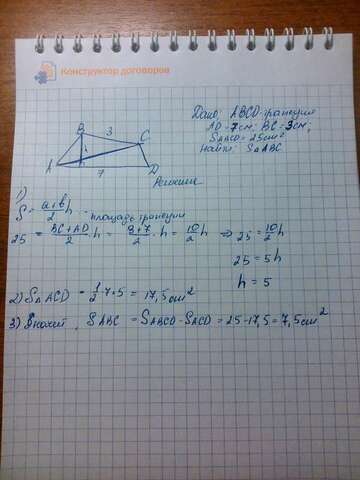 Конструктор договоров
Дано: ABCD-трапеция
AD=7см; BC=3см;
SABCD=25см²
Найти: S△ABC
B 3 C
h
A 7 D
Решение
1)
S = a+b/2 h - площадь трапеции
25 = BC+AD/2 · h = 3+7/2 · h = 10/2 h ⇒ 25 = 10/2 h
25 = 5h
h = 5
2) S△ACD = 1/2 · 7 · 5 = 17,5 см²
3) Значит, SABC = SABCD - SACD = 25-17,5 = 7,5 см²